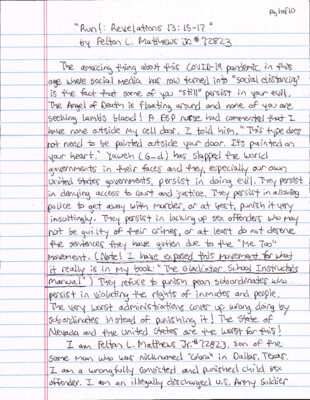 Pg 1 of 10
"Run!: Revelations 13:15-17"
by Felton L. Matthews Jr. #72823
The amazing thing about this COVID-19 pandemic in this
age where social media has now turned into "social distancing"
is the fact that some of you "still" persist in your evil.
The Angel of Death is floating around and none of you are
seeking lambs blood! A ESP nurse had commented that I
have none outside my cell door. I told him, "This type does
not need to be painted outside your door. Its painted on
your heart." Yaweh (G-d) has slapped the world
governments in their faces and they, especially our own
United States governments, persist in doing evil. They persist
in denying access to court and justice. They persist in allowing
police to get away with murder, or at best, punish it very
insultingly. They persist in locking up sex offenders who may
not be guilty of their crimes, or at least do not deserve
the sentences they have gotten due to the "Me Too"
movement. (Note! I have exposed this movement for what
it really is in my book: "The Gladiator School Instructors
Manual.") They refuse to punish peon subordinates who
persist in violating the rights of inmates and people.
The very worst administrations cover up wrong doing by
subordinates instead of punishing it! The State of
Nevada and the United States are the worst for this!
I am Felton L. Matthews Jr. #72823, son of the
same man who was nicknamed "Cobra" in Dallas, Texas.
I am a wrongfully convicted and punished child sex
offender. I am an illegally discharged U.S. Army Soldier